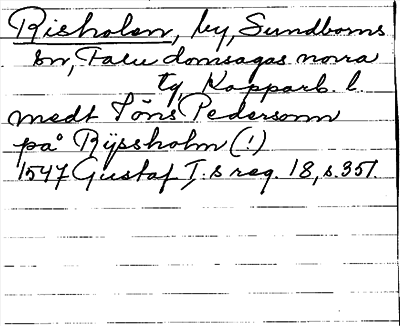 Risholen, by, Sundborns
sn, Falu domsagas norra
tg, Kopparb. l.
medt Jöns Pedersonn
på Rijssholm (!)
1547 Gustaf I:s reg. 18, s. 351.